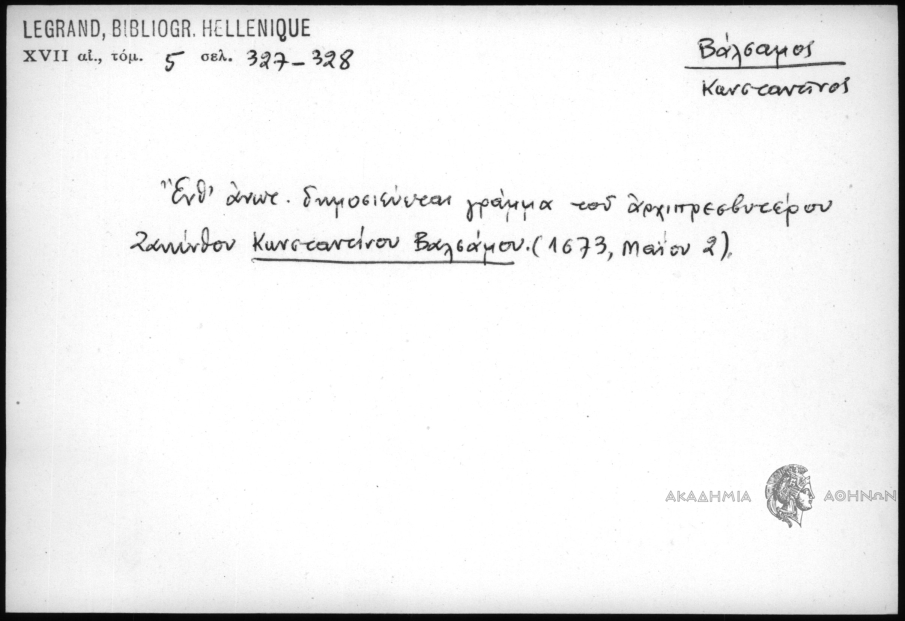 LEGRAND, BIBLIOGR. HELLENIQUE
XVII αἰ., τόμ. 5 σελ. 327-328
Βάλσαμος
Κωνσταντῖνος
Ἔνθ' ἀνωτ. δημοσιεύεται γράμμα τοῦ ἀρχιπρεσβυτέρου
Ζακύνθου Κωνσταντίνου Βαλσάμου. (1673, Μαΐου 2).
ΑΚΑΔΗΜΙΑ ΑΘΗΝΩΝ